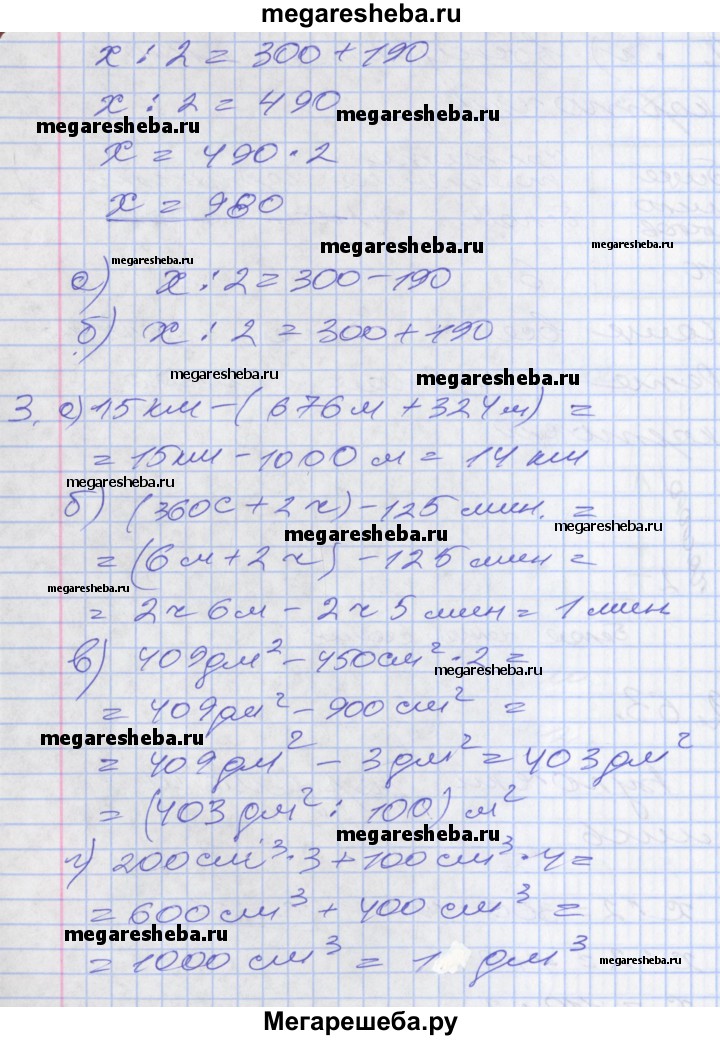 megaresheba.ru
x : 2 = 300 + 190
x : 2 = 490
megaresheba.ru
megaresheba.ru
x = 490 · 2
x = 980
megaresheba.ru
megaresheba.ru
megaresheba.ru
а) x : 2 = 300 - 190
б) x : 2 = 300 + 190
megaresheba.ru
megaresheba.ru
3. а) 15 км - (676 м + 324 м) =
= 15 км - 1000 м = 14 км
megaresheba.ru
б) (360 с + 2 ч) - 125 мин. =
megaresheba.ru
megaresheba.ru
= (6 м + 2 ч) - 125 мин =
megaresheba.ru
= 2 ч 6 м - 2 ч 5 мин = 1 мин
в) 409 дм² - 450 см² · 2 =
megaresheba.ru
= 409 дм² - 900 см² =
megaresheba.ru
= 409 дм² - 3 дм² = 403 дм²
= (403 дм² : 100) м²
megaresheba.ru
г) 200 см³ · 3 + 100 см³ · 4 =
= 600 см³ + 400 см³ =
megaresheba.ru
= 1000 см³ = 1 дм³
megaresheba.ru
Мегарешеба.ру